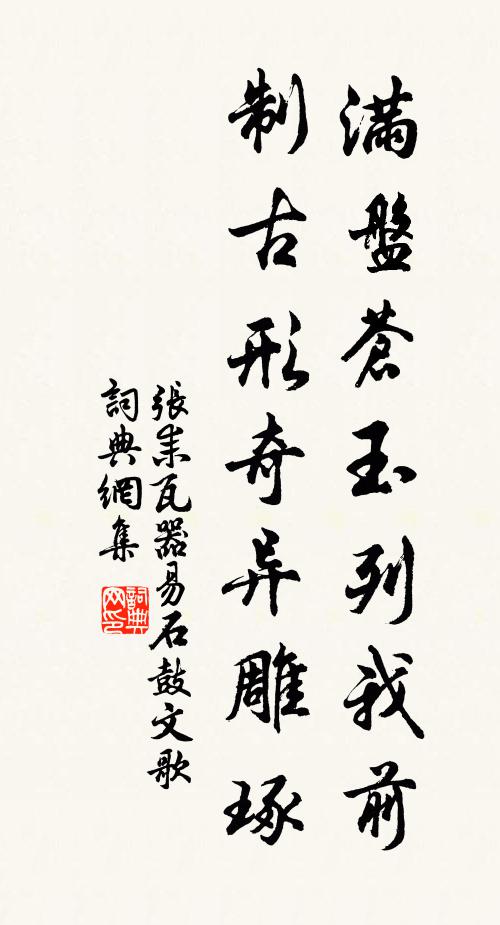 滿盤蒼玉列我前
制古形奇异雕琢
張耒瓦器易石鼓文歌
詞典網集
詞典网印